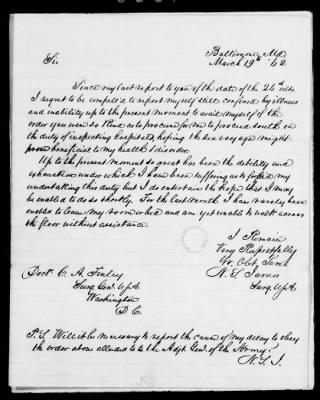 Baltimore, Md.
March 19th '62
Sir
Since my last report to you of the date of the 26th
I regret to be compelled to report myself still confined by illness
and inability up to the present moment to avail myself of the
order you were so kind as to procure for me to proceed south on
the duty of inspecting hospitals, hoping the sea voyage might
prove beneficial to my health & disorder.
Up to the present moment so great has been the debility and
exhaustion under which I have been suffering as to forbid my
undertaking this duty but I do entertain the hope that I may
be enabled to do so shortly. For the last month I have rarely been
enabled to leave my room or bed and am yet unable to walk across
the floor without assistance.
I Remain
Very Respectfully
Yr. Obt. Servt
N. S. Jarvis
Surg. U.S.A.
Doct. C. A. Finley
Surg. Genl. U.S.A.
Washington
D.C.
P.S. Will it be necessary to report the cause of my delay to obey
the order above alluded to to the Adjt. Genl. of the Army?
N.S.J.